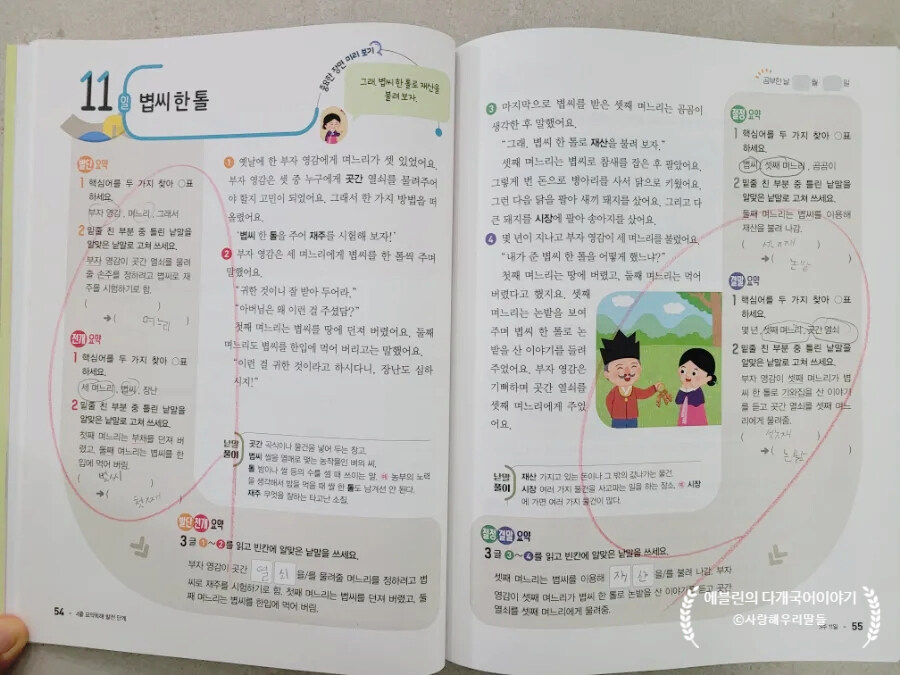 11일 볍씨 한 톨
중요한 장면 미리 보기
그래, 볍씨 한 톨로 재산을
불려 보자.
발단 요약
1 핵심어를 두 가지 찾아 ○표
하세요.
부자 영감, 며느리, 그래서
2 밑줄 친 부분 중 틀린 낱말을
알맞은 낱말로 고쳐 쓰세요.
부자 영감이 곳간 열쇠를 물려
줄 손주를 정하려고 볍씨로 재
주를 시험하기로 함.
( )
→( 며느리 )
전개 요약
1 핵심어를 두 가지 찾아 ○표
하세요.
세 며느리, 볍씨, 장난
2 밑줄 친 부분 중 틀린 낱말을
알맞은 낱말로 고쳐 쓰세요.
첫째 며느리는 부채를 던져 버
렸고, 둘째 며느리는 볍씨를 한
입에 먹어 버림.
( 볍씨 )
→( 첫째 )
1 옛날에 한 부자 영감에게 며느리가 셋 있었어요.
부자 영감은 셋 중 누구에게 곳간 열쇠를 물려주어
야 할지 고민이 되었어요. 그래서 한 가지 방법을 떠
올렸어요.
'볍씨 한 톨을 주어 재주를 시험해 보자!'
2 부자 영감은 세 며느리에게 볍씨를 한 톨씩 주며
말했어요.
"귀한 것이니 잘 받아 두어라."
"아버님은 왜 이런 걸 주셨담?"
첫째 며느리는 볍씨를 땅에 던져 버렸어요. 둘째
며느리도 볍씨를 한입에 먹어 버리고는 말했어요.
"이런 걸 귀한 것이라고 하시다니, 장난도 심하
시지!"
낱말 풀이
곳간 곡식이나 물건을 넣어 두는 창고.
볍씨 쌀을 열매로 맺는 농작물인 벼의 씨.
톨 밤이나 쌀 등의 수를 셀 때 쓰이는 말. 예 농부의 노력
을 생각해서 밥을 먹을 때 쌀 한 톨도 남겨선 안 된다.
재주 무엇을 잘하는 타고난 소질.
발단 전개 요약
3 글 1~2를 읽고 빈칸에 알맞은 낱말을 쓰세요.
부자 영감이 곳간 열쇠 을/를 물려줄 며느리를 정하려고 볍
씨로 재주를 시험하기로 함. 첫째 며느리는 볍씨를 던져 버렸고, 둘
째 며느리는 볍씨를 한입에 먹어 버림.
54 • 4주 요약하며 발전 단계
공부한 날 월 일
3 마지막으로 볍씨를 받은 셋째 며느리는 곰곰이
생각한 후 말했어요.
"그래, 볍씨 한 톨로 재산을 불려 보자."
셋째 며느리는 볍씨로 참새를 잡은 후 팔았어요.
그렇게 번 돈으로 병아리를 사서 닭으로 키웠어요.
그런 다음 닭을 팔아 새끼 돼지를 샀어요. 그리고 다
큰 돼지를 시장에 팔아 송아지를 샀어요.
4 몇 년이 지나고 부자 영감이 세 며느리를 불렀어요.
"내가 준 볍씨 한 톨을 어떻게 했느냐?"
첫째 며느리는 땅에 버렸고, 둘째 며느리는 먹어
버렸다고 했지요. 셋째
며느리는 논밭을 보여
주며 볍씨 한 톨로 논
밭을 산 이야기를 들려
주었어요. 부자 영감은
기뻐하며 곳간 열쇠를
셋째 며느리에게 주었
어요.
낱말 풀이
재산 가지고 있는 돈이나 그 밖의 값나가는 물건.
시장 여러 가지 물건을 사고파는 일을 하는 장소. 예 시장
에 가면 여러 가지 물건이 많다.
절정 요약
1 핵심어를 두 가지 찾아 ○표
하세요.
볍씨, 셋째 며느리, 곰곰이
2 밑줄 친 부분 중 틀린 낱말을
알맞은 낱말로 고쳐 쓰세요.
둘째 며느리는 볍씨를 이용해
재산을 불려 나감.
→( 논밭 )
결말 요약
1 핵심어를 두 가지 찾아 ○표
하세요.
몇 년, 셋째 며느리, 곳간 열쇠
2 밑줄 친 부분 중 틀린 낱말을
알맞은 낱말로 고쳐 쓰세요.
부자 영감이 셋째 며느리가 볍
씨 한 톨로 기와집을 산 이야기
를 듣고 곳간 열쇠를 셋째 며느
리에게 물려줌.
→( 논밭 )
절정 결말 요약
3 글 3~4를 읽고 빈칸에 알맞은 낱말을 쓰세요.
셋째 며느리는 볍씨를 이용해 재산 을/를 불려 나감. 부자
영감이 셋째 며느리가 볍씨 한 톨로 논밭을 산 이야기를 듣고 곳간
열쇠를 셋째 며느리에게 물려줌.
55
에블린의 다개국어이야기
©사랑해우리딸들